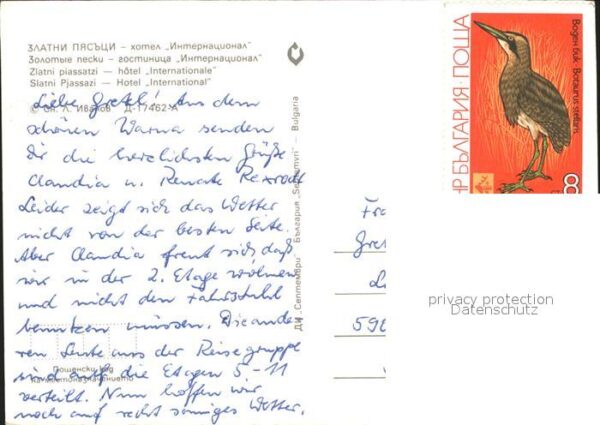 ЗЛАТНИ ПЯСЪЦИ – хотел „Интернационал"
Золотые пески – гостиница „Интернационал"
Zlatni piassatzi – hôtel „Internationale"
Slatni Pjassazi – Hotel „International"
© Ол. Л. Иванов Д-17462-А
Liebe Gretel! Aus dem
schönen Warna senden
Dir die herzlichsten Grüße
Claudia u. Renate Rexrodt
Leider zeigt sich das Wetter
nicht von der besten Seite.
Aber Claudia freut sich, daß
wir in der 2. Etage wohnen
und nicht den Fahrstuhl
benutzen müssen. Die ande
ren Leute aus der Reisegruppe
sind auf die Etagen 5 – 11
verteilt. Nun hoffen wir
noch auf recht sonniges Wetter.
Пощенски код
на местоназначението
ДИ „Септември" България „Septemvri" – Bulgaria
НР БЪЛГАРИЯ · ПОЩА
Воден бик · Botaurus stellaris
8
Fra
Gret
598
privacy protection
Datenschutz